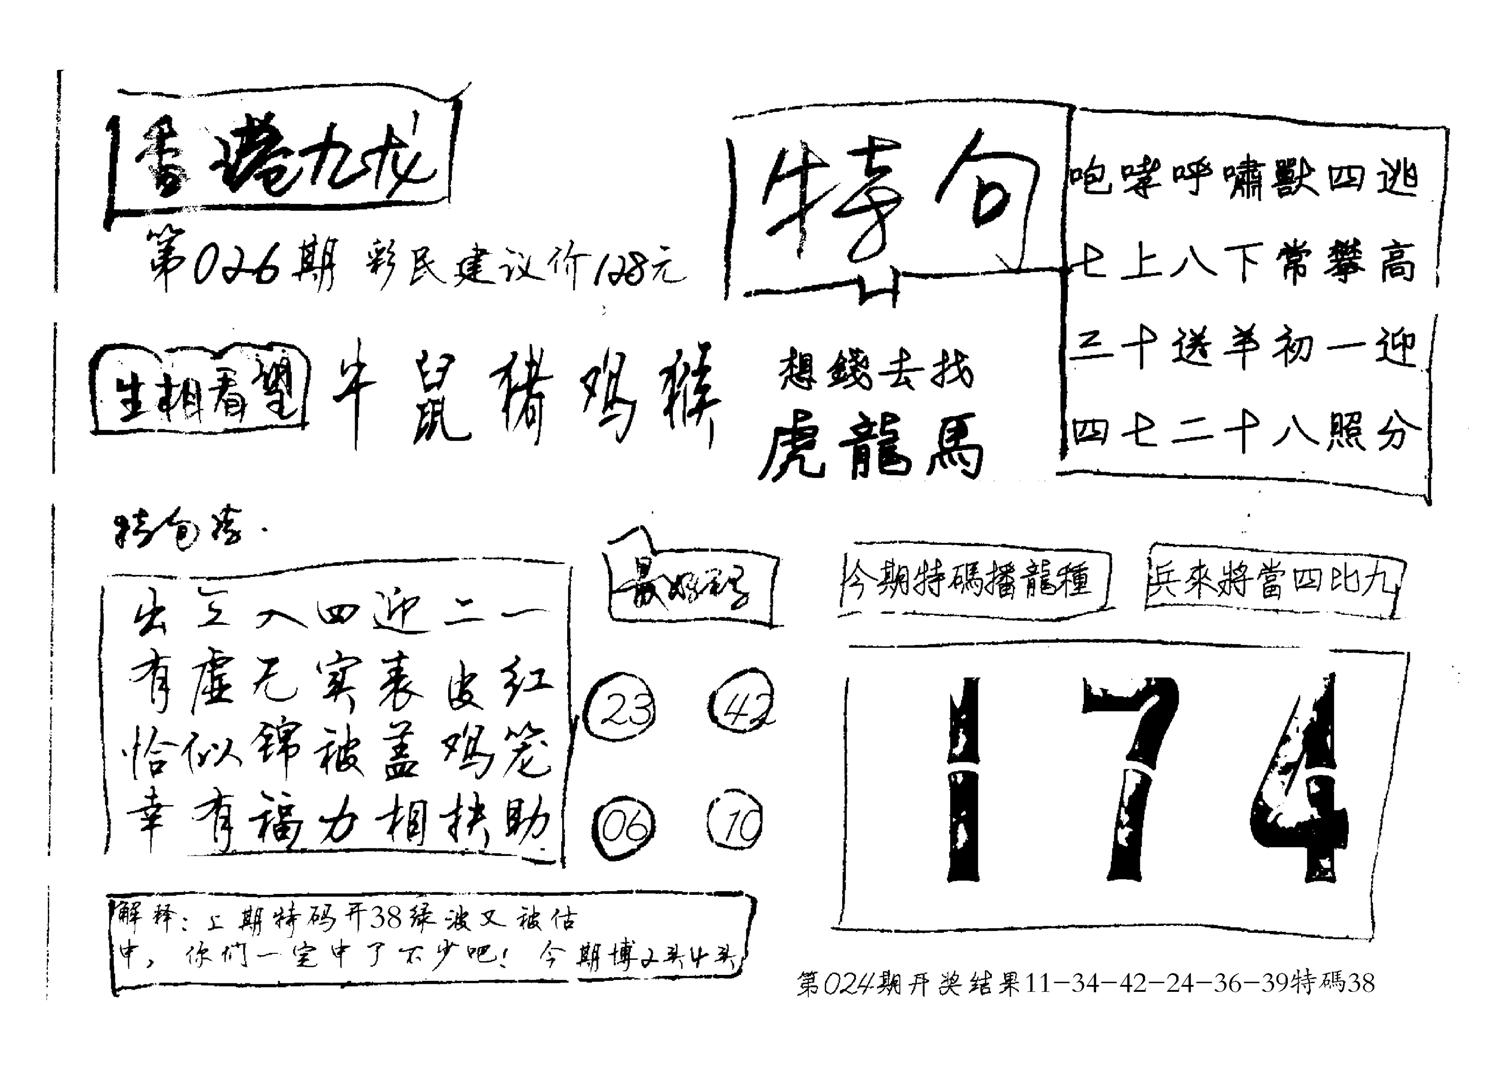 香港九龙
第026期 彩民建议价128元
生相看望 牛鼠猪鸡猴
特句
咆哮呼嘯獸四逃
七上八下常攀高
三十送羊初一迎
四七二十八照分
想錢去找
虎龍馬
特句
出三入四迎二一
有虚无实表皮红
恰似锦被盖鸡笼
幸有福力相扶助
最好码
23 42
06 10
今期特碼播龍種
兵來將當四比九
174
解释：上期特码开38绿波又被估
中，你们一定中了不少吧！今期博2头4头
第024期开奖结果11-34-42-24-36-39特碼38